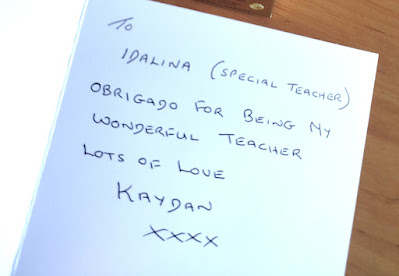 To
IDALINA (SPECIAL TEACHER)
OBRIGADO FOR BEING MY
WONDERFUL TEACHER
LOTS OF LOVE
KAYDAN
XXXX